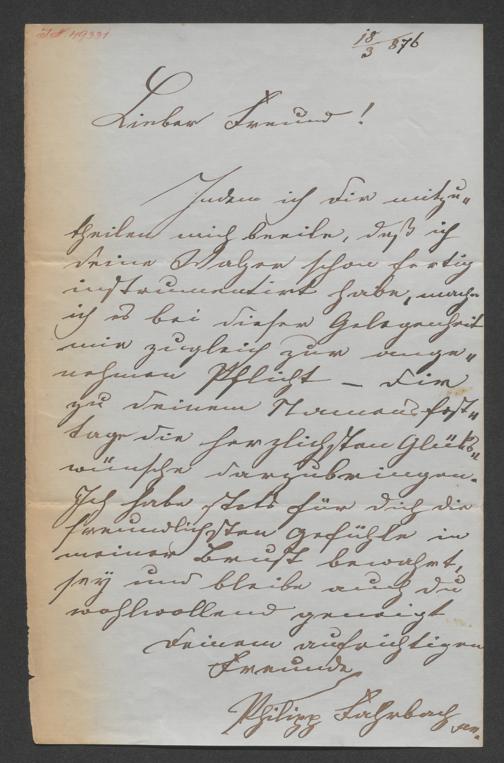 I.N. 49331
18/3 876
Lieber Freund!
Indem ich Dir mitzu„
theilen mich beeile, daß ich
Deine Walzer schon fertig
instrumentirt habe, mache
ich es bei dieser Gelegenheit
mir zugleich zur ange„
nehmen Pflicht – Dir
zu Deinem Namensfest„
tage die herzlichsten Glücks„
wünsche darzubringen.
Ich habe stets für Dich die
freundlichsten Gefühle in
meiner Brust bewahrt,
sey und bleibe auch Du
wohlwollend geneigt
Deinem aufrichtigen
Freunde
Philipp Fahrbach sen.